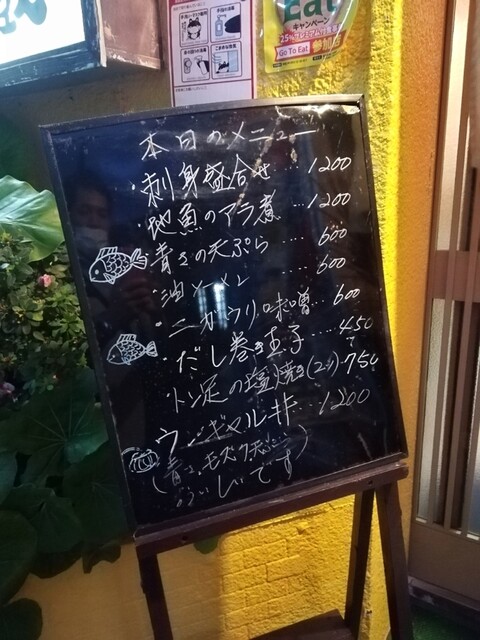 Eat
キャンペーン
Go To Eat
本日のメニュー
・刺身盛合せ…1200
・地魚のアラ煮…1200
・青さの天ぷら…600
・油ソーメン…600
・ニガウリ味噌…600
・だし巻き玉子…450
トン足の塩焼き(2コ)・750
ウンギャル丼…1200